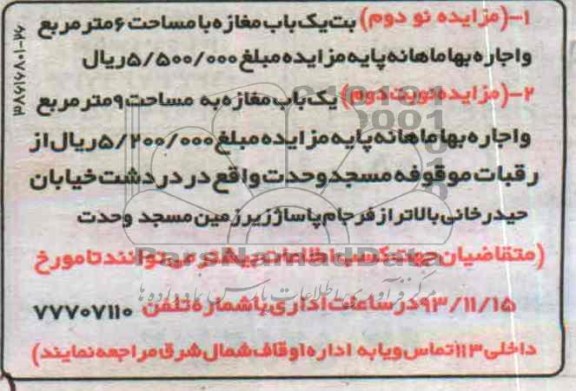 ۱-(مزایده نو دوم) بت یک باب مغازه با مساحت ۶ متر مربع
و اجاره بها ماهانه پایه مزایده مبلغ ۵/۵۰۰/۰۰۰ ریال
۲-(مزایده نوبت دوم) یک باب مغازه به مساحت ۹ متر مربع
و اجاره بها ماهانه پایه مزایده مبلغ ۵/۲۰۰/۰۰۰ ریال از
رقبات موقوفه مسجد وحدت واقع در دردشت خیابان
حیدرخانی بالاتر از فرجام پاساژ زیرزمین مسجد وحدت
(متقاضیان جهت کسب اطلاعات بیشتر می توانند تا مورخ
۹۳/۱۱/۱۵ در ساعات اداری با شماره تلفن ۷۷۷۰۷۱۱۰
داخلی ۱۱۳ تماس و یا به اداره اوقاف شمال شرق مراجعه نمایند)